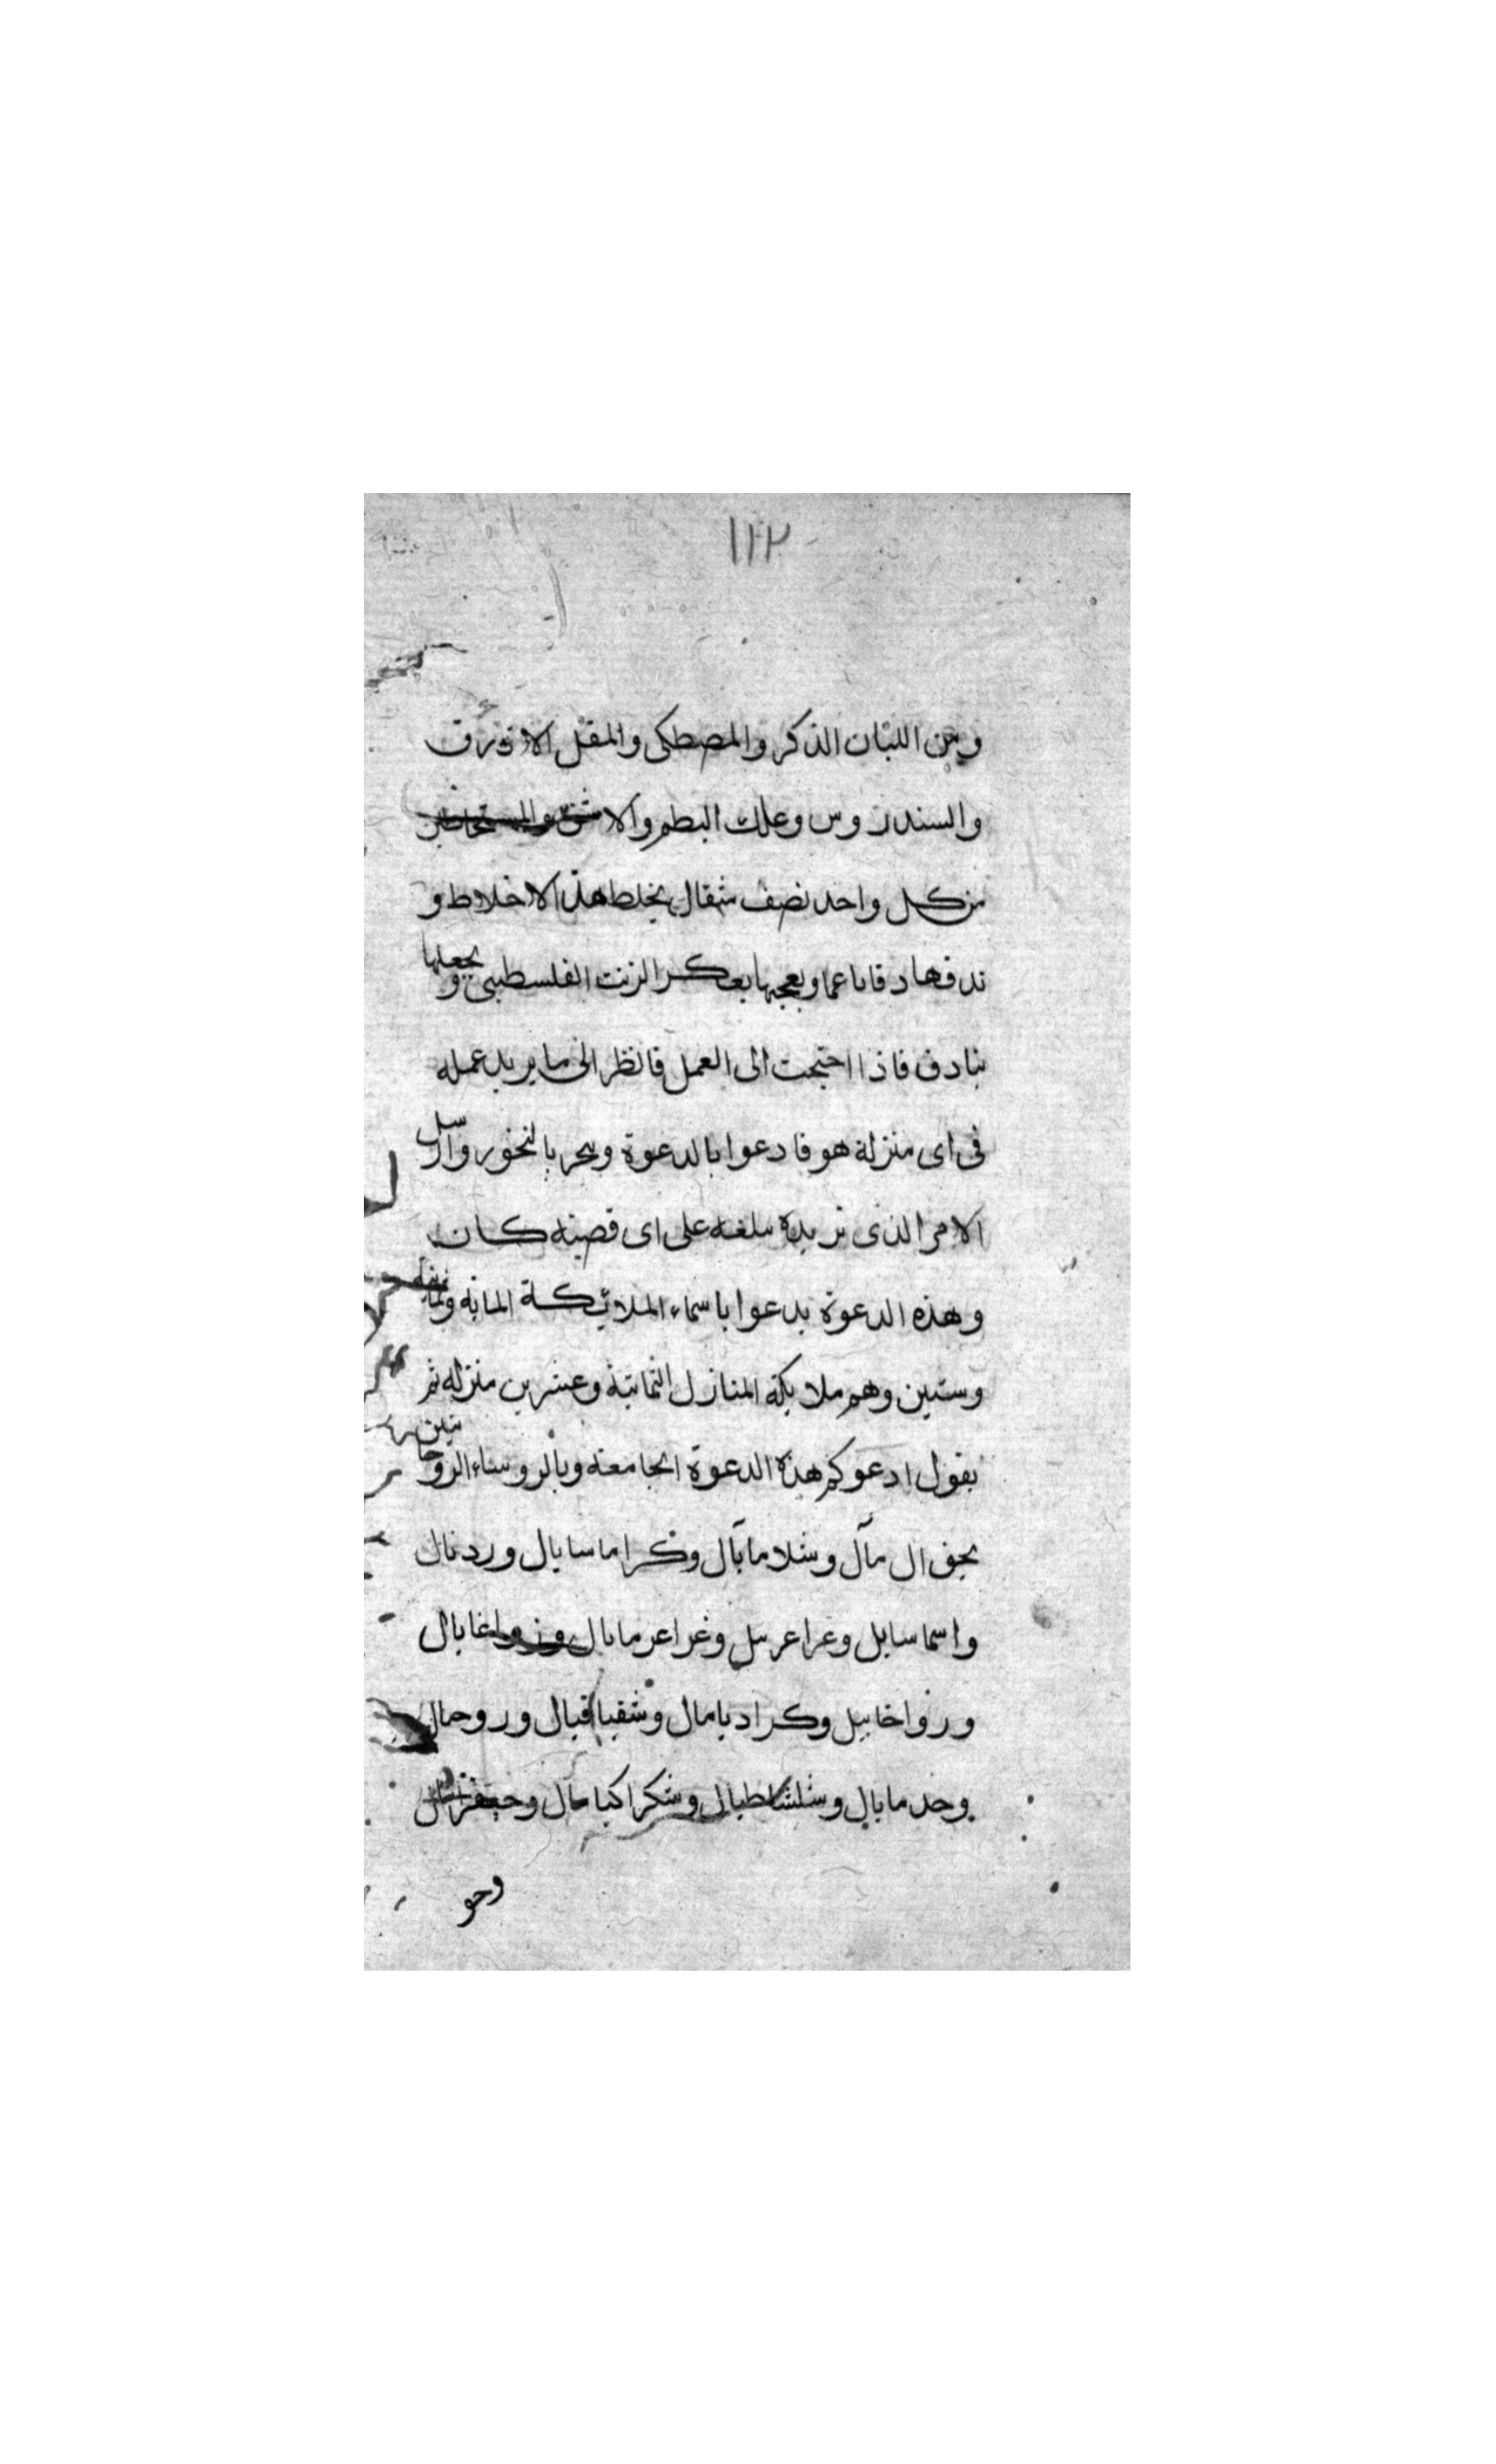 ١١٢
ومن اللبان الذكر والمصطكى والمقل الازرق
والسندروس وعلك البطم والاشق
من كل واحد نصف مثقال يخلط هذه الاخلاط و
ندقها دقا ناعما ويعجنها بعكر الزيت الفلسطينى ويجعلها
بنادق فاذا احتجت الى العمل فانظر الى ما يريد عمله
فى اى منزلة هو فادعوا بالدعوة وبخر بالبخور
الامر الذى تريده على اى قصيه كان
وهذه الدعوة يدعوا باسماء الملائكة المايه وثمانيه
وستين وهم ملايكة المنازل الثمانية وعشرين منزله ثم
يقول ادعوكم هذه الدعوة الجامعة وبالروساء الروحانيين
بحق ال مآل وشلامابآل وكراماسايال وردنال
واسماسايل وغراعرمايال
وكراديامال وروحيال
وحدمابال وشلشاطيال وشكراكيامال
وحو